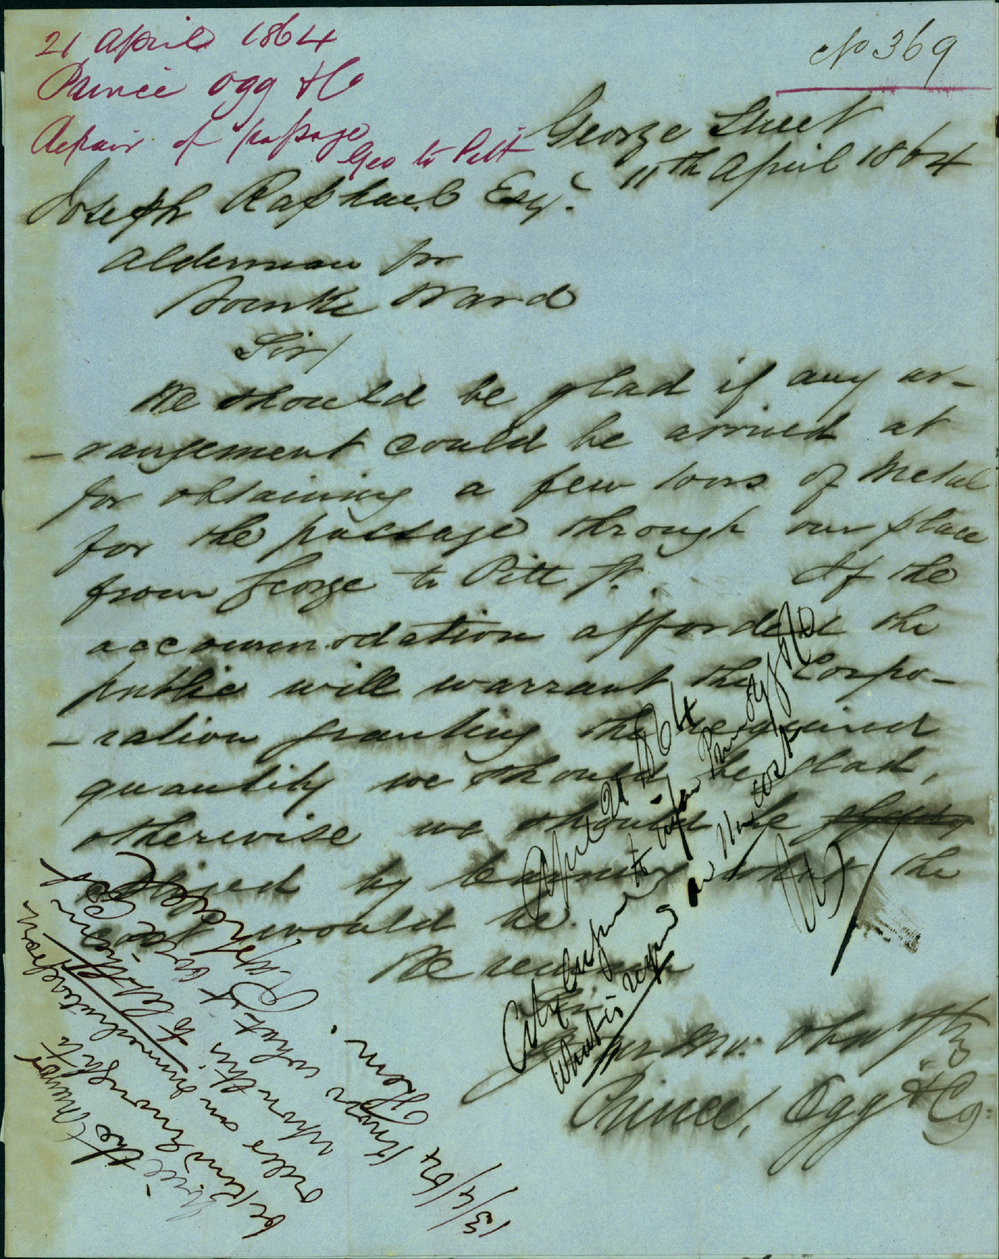 21 April 1864
Prince Ogg & Co
Repair of passage
Geo to Pitt
No 369
George Street
11th April 1864
Joseph Raphael Esqr.
Alderman for
Bourke Ward
Sir/
We should be glad if any ar-
-rangement could be arrived at
for obtaining a few tons of Metal
for the passage through our place
from George to Pitt St. If the
accommodation afforded the
public will warrant the Corpo-
-ration granting the required
quantity we should be glad,
otherwise we should be
obliged by learning what the
cost would be.
We remain
Sir
Your
Prince, Ogg & Co:
April 21 1864
City to inform Prince Ogg & Co
what is required
cost
Give the
order an immediate
when this to
what it
13/4/64